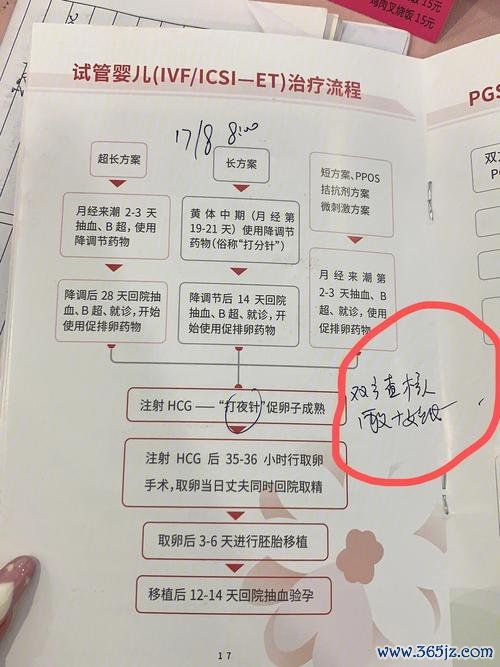 鸡肉叉烧饭 15元
试管婴儿(IVF/ICSI—ET)治疗流程
PGS
17/8 8:00
超长方案
长方案
短方案、PPOS
拮抗剂方案
微刺激方案
月经来潮 2-3 天
抽血、B 超，使用
降调节药物
黄体中期（月经第
19-21 天）使用降调节
药物（俗称“打分针”）
月经来潮第
2-3 天抽血、B
超、就诊，使用
促排卵药物
降调后 28 天回院抽
血、B 超、就诊，开始
使用促排卵药物
降调节后 14 天回院
抽血、B 超、就诊，开
始使用促排卵药物
注射 HCG —— “打夜针”促卵子成熟
双方查
注射 HCG 后 35-36 小时行取卵
手术，取卵当日丈夫同时回院取精
取卵后 3-6 天进行胚胎移植
移植后 12-14 天回院抽血验孕
17
www.365jz.com